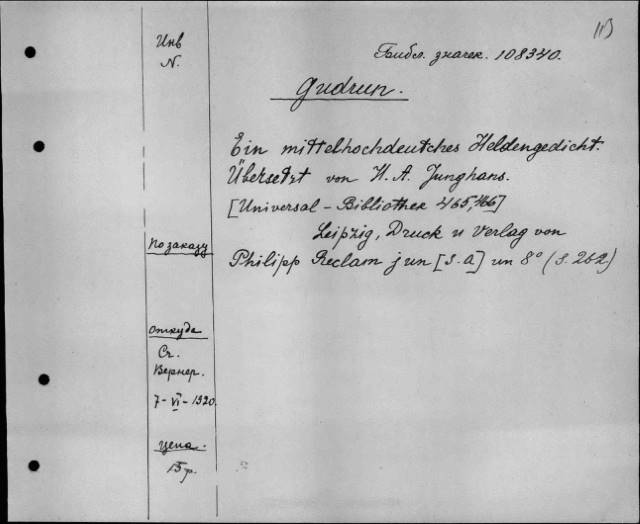 113
Инв
N.
Библ. значек. 108340.
Gudrun.
Ein mittelhochdeutsches Heldengedicht.
Übersetzt von H. A. Junghans.
[Universal - Bibliothek 465, 466]
Leipzig, Druck u Verlag von
По заказу
Philipp Reclam jun [S. a] un 8° (S. 262)
откуда
Ст.
Вернер.
7 - VI - 1920.
цена.
15 р.